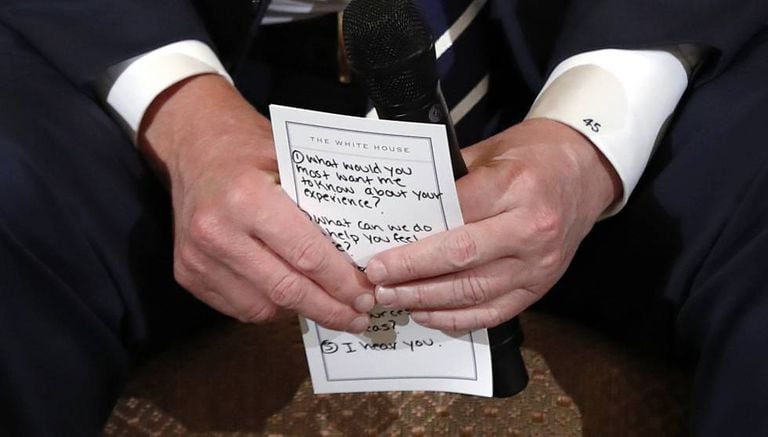 THE WHITE HOUSE
① What would you
most want me
to know about your
experience?
What can we do
help you feel
?
⑤ I hear you.
45